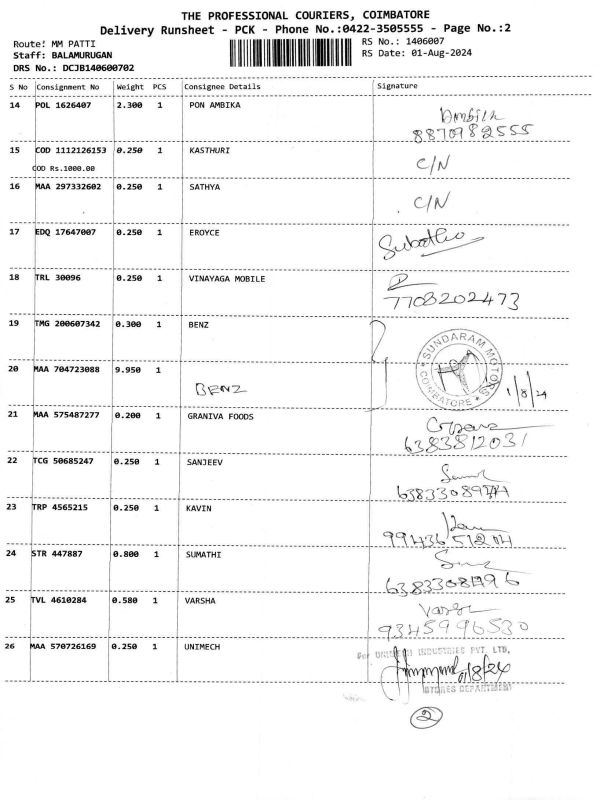 THE PROFESSIONAL COURIERS, COIMBATORE
Delivery Runsheet - PCK - Phone No.:0422-3505555 - Page No.:2
Route! MM PATTI RS No.: 1406007
Staff: BALAMURUGAN RS Date: 01-Aug-2024
DRS No.: DCJB140600702
S No Consignment No Weight PCS Consignee Details Signature
14 POL 1626407 2.300 1 PON AMBIKA Ambika
8870982555
15 COD 1112126153 0.250 1 KASTHURI C/N
COD Rs.1000.00
16 MAA 297332602 0.250 1 SATHYA C/N
17 EDQ 17647007 0.250 1 EROYCE
18 TRL 30096 0.250 1 VINAYAGA MOBILE
7708202473
19 TMG 200607342 0.300 1 BENZ
SUNDARAM MOTORS
COIMBATORE
20 MAA 704723088 9.950 1 BENZ 1/8/24
21 MAA 575487277 0.200 1 GRANIVA FOODS
6383812031
22 TCG 50685247 0.250 1 SANJEEV
23 TRP 4565215 0.250 1 KAVIN
24 STR 447887 0.800 1 SUMATHI
25 TVL 4610284 0.580 1 VARSHA Varsha
9345996530
26 MAA 570726169 0.250 1 UNIMECH For UNIMECH INDUSTRIES PVT. LTD.
01/8/24
STORES DEPARTMENT
2